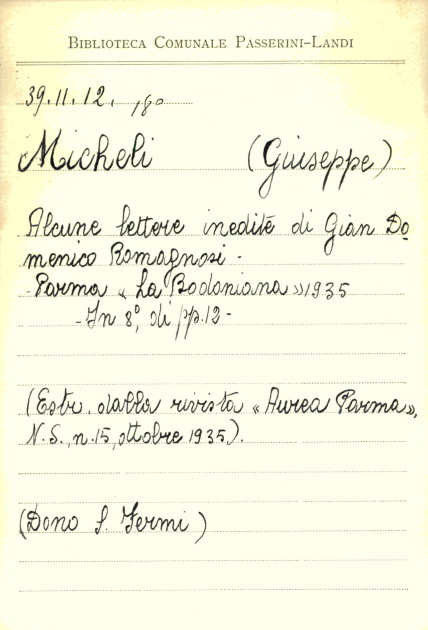 BIBLIOTECA COMUNALE PASSERINI-LANDI
39.11.12. 180
Micheli (Giuseppe)
Alcune lettere inedite di Gian Do
menico Romagnosi -
- Parma « La Bodoniana » 1935
- In 8°, di pp. 12 -
(Estr. dalla rivista « Aurea Parma »,
N.S., n. 15, ottobre 1935).
(Dono S. Fermi)